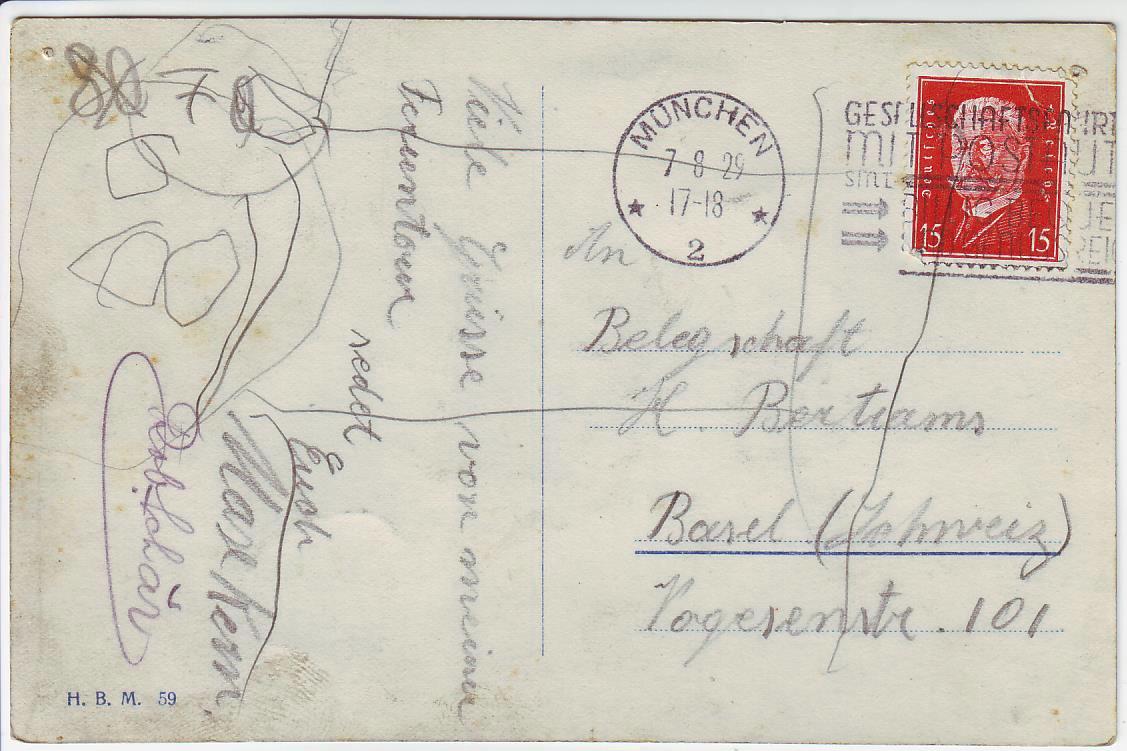 Viele Grüsse von meiner
Ferientour
sedet
Euch
Max Kern
Rob. Schär
H. B. M. 59
MÜNCHEN
7-8-29
17-18
2
GESELLSCHAFTSFAHRT
MIT
SIND
Deutsches Reich
15 15
An
Belegschaft
H. Bertrams
Basel (Schweiz)
Vogesenstr. 101